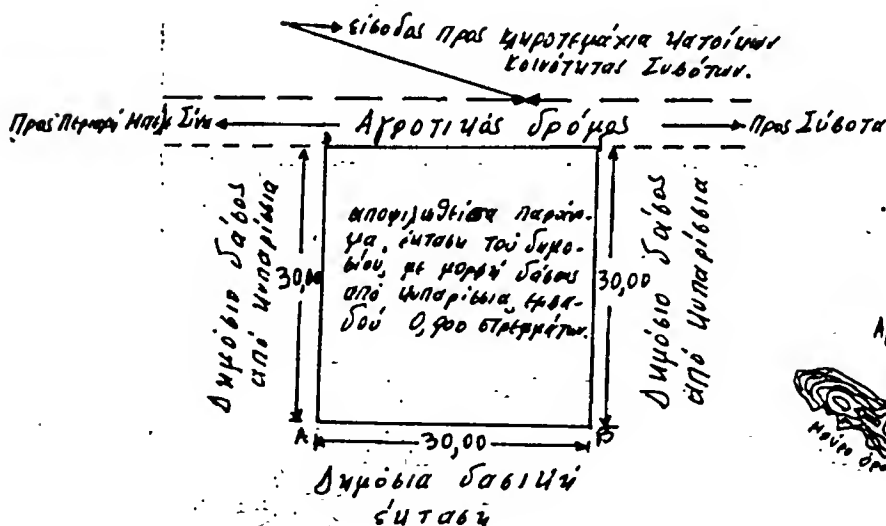 είσοδος προς κληροτεμάχια κατοίκων
κοινότητας Συβότων.
Προς Περιοχή Μπελε Σίνα
Αγροτικός δρόμος
Προς Σύβοτα
Δημόσιο δάσος
από κυπαρίσσια
30,00
αποψιλωθείσα παράνο-
μα, έκταση τού δημο-
σίου, με μορφή δάσους
από κυπαρίσσια, εμβα-
δού 0,900 στρεμμάτων.
30,00
Δημόσιο δάσος
από κυπαρίσσια
Α
30,00
Β
Δημόσια δασική
έκταση
μαύρο όρο